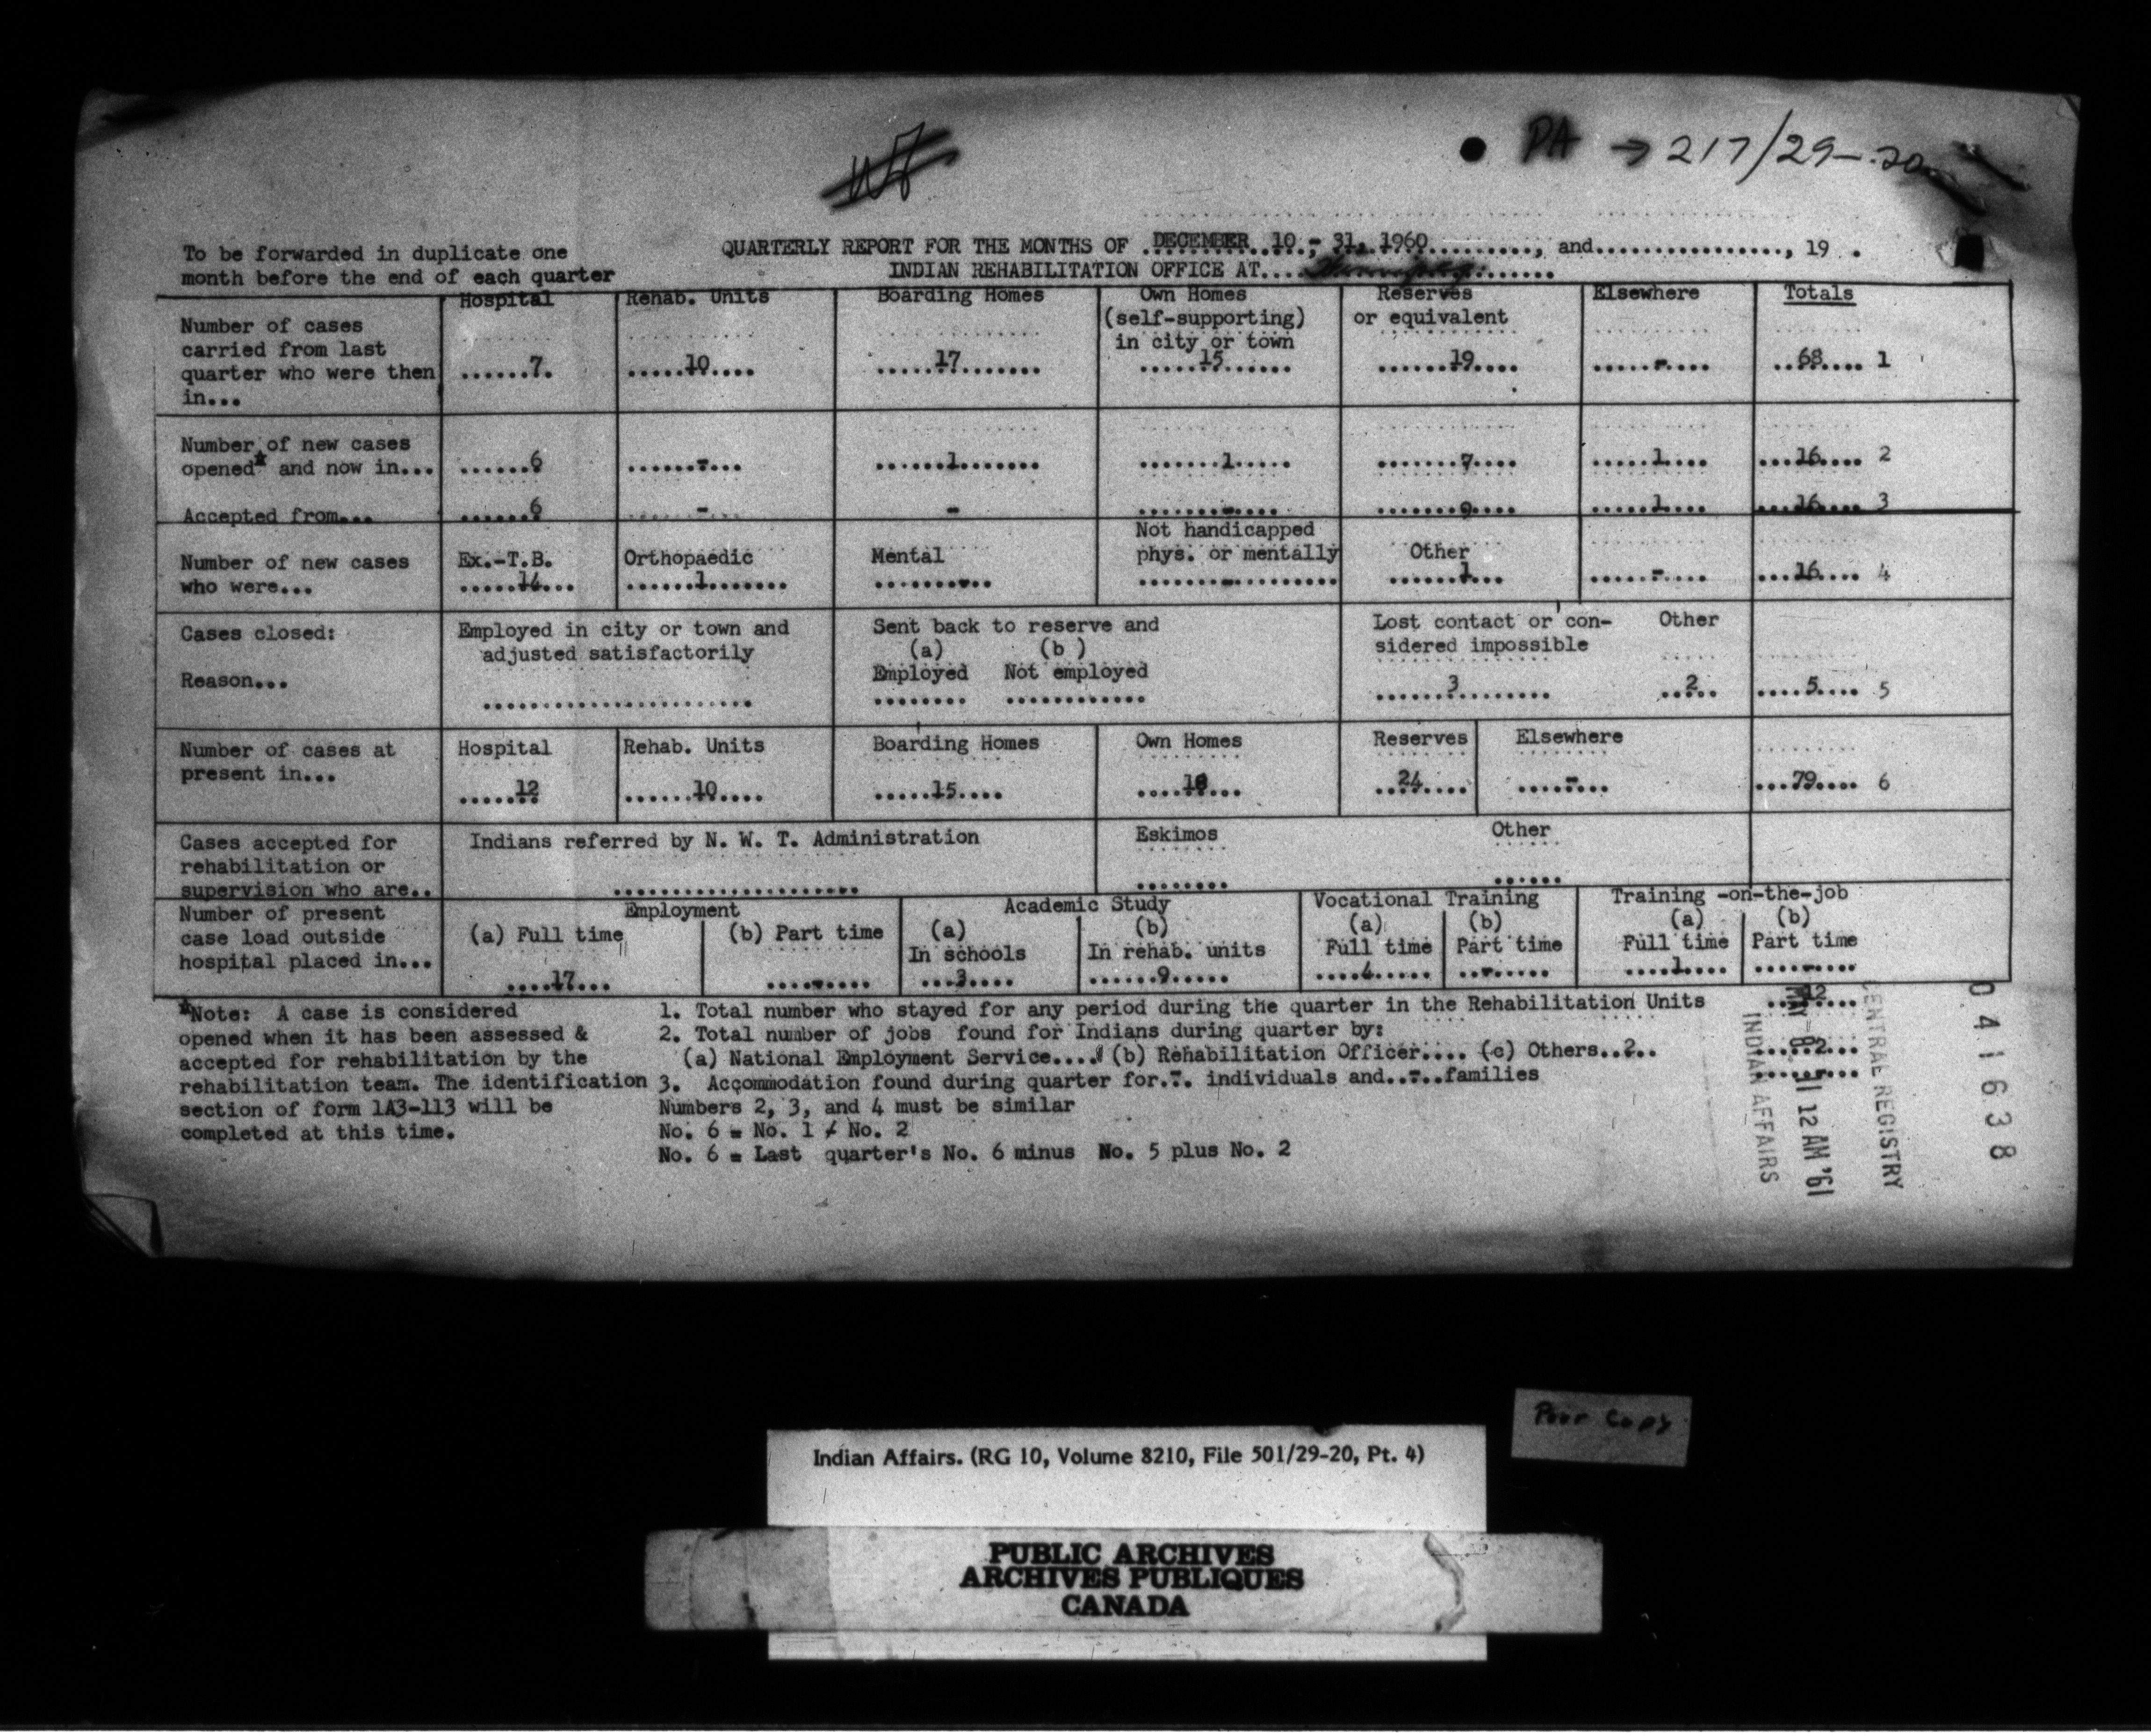 PA → 217/29-20
To be forwarded in duplicate one
month before the end of each quarter
QUARTERLY REPORT FOR THE MONTHS OF DECEMBER 10 - 31, 1960, and................, 19 .
INDIAN REHABILITATION OFFICE AT....
Hospital Rehab. Units Boarding Homes Own Homes Reserves Elsewhere Totals
(self-supporting) or equivalent
in city or town
Number of cases
carried from last
quarter who were then
in...
7 10 17 15 19 - 68 1
Number of new cases
opened* and now in... 6 - 1 1 7 1 16 2
Accepted from... 6 - - - 9 1 16 3
Number of new cases
who were...
Ex.-T.B. Orthopaedic Mental Not handicapped
phys. or mentally Other
14 1 - - 1 - 16 4
Cases closed:
Reason...
Employed in city or town and
adjusted satisfactorily
Sent back to reserve and
(a) (b )
Employed Not employed
Lost contact or con-
sidered impossible Other
3 2 5 5
Number of cases at
present in...
Hospital Rehab. Units Boarding Homes Own Homes Reserves Elsewhere
12 10 15 18 24 - 79 6
Cases accepted for
rehabilitation or
supervision who are..
Indians referred by N. W. T. Administration Eskimos Other
Number of present
case load outside
hospital placed in...
Employment Academic Study Vocational Training Training -on-the-job
(a) Full time (b) Part time (a) In schools (b) In rehab. units (a) Full time (b) Part time (a) Full time (b) Part time
17 - 3 9 4 - 1 -
*Note: A case is considered
opened when it has been assessed &
accepted for rehabilitation by the
rehabilitation team. The identification
section of form 1A3-113 will be
completed at this time.
1. Total number who stayed for any period during the quarter in the Rehabilitation Units 12
2. Total number of jobs found for Indians during quarter by:
(a) National Employment Service.... (b) Rehabilitation Officer.... (c) Others..2.. 2
3. Accommodation found during quarter for.-. individuals and..-..families -
Numbers 2, 3, and 4 must be similar
No. 6 = No. 1 ≠ No. 2
No. 6 = Last quarter's No. 6 minus No. 5 plus No. 2
INDIAN AFFAIRS
11 12 AM '61
CENTRAL REGISTRY
041638
Poor Copy
Indian Affairs. (RG 10, Volume 8210, File 501/29-20, Pt. 4)
PUBLIC ARCHIVES
ARCHIVES PUBLIQUES
CANADA